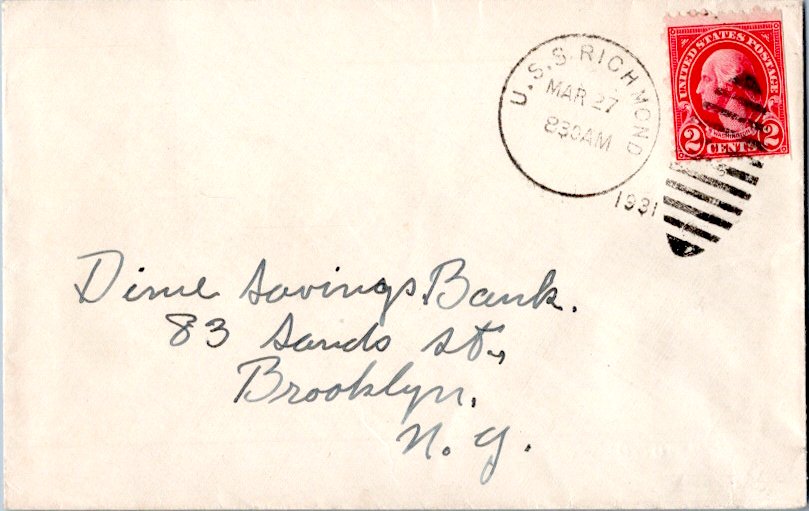 U.S.S. RICHMOND
MAR 27
830AM
1931
UNITED STATES POSTAGE
WASHINGTON
2 CENTS 2
Dime Savings Bank.
83 Sands St.,
Brooklyn,
N. Y.